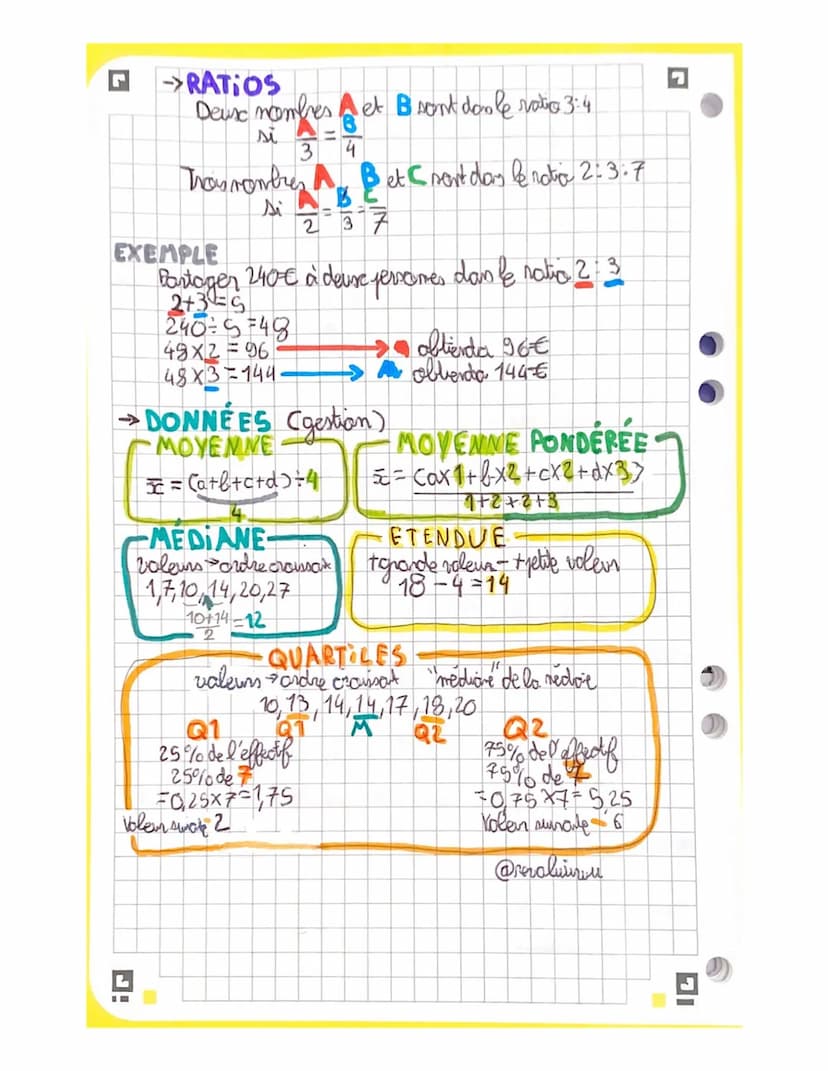 →RATIOS
Deux nombres A et B sont dans le ratio 3:4
si A/3 = B/4
Trois nombres A, B et C sont dans le ratio 2:3:7
si A/2 = B/3 = C/7
EXEMPLE
Partager 240€ à deux personnes dans le ratio 2:3
2+3=5
240÷5=48
48×2=96 → obtiendra 96€
48×3=144 → obtiendra 144€
→DONNÉES (gestion)
MOYENNE
x̄ = (a+b+c+d)÷4
4
MOYENNE PONDÉRÉE
x̄ = (a×1+b×2+c×2+d×3)
1+2+2+3
MÉDIANE
valeurs→ordre croissant
1,7,10,14,20,27
10+14/2=12
ETENDUE
+grande valeur-+petite valeur
18-4=14
QUARTILES
valeurs→ordre croissant "médiane" de la médiane
10,13,14,14,17,18,20
Q1 M Q2
Q1
25% de l'effectif
25% de 7
=0,25×7=1,75
Valeur suivante 2
Q2
75% de l'effectif
75% de 7
=0,75×7=5,25
Valeur suivante = 6